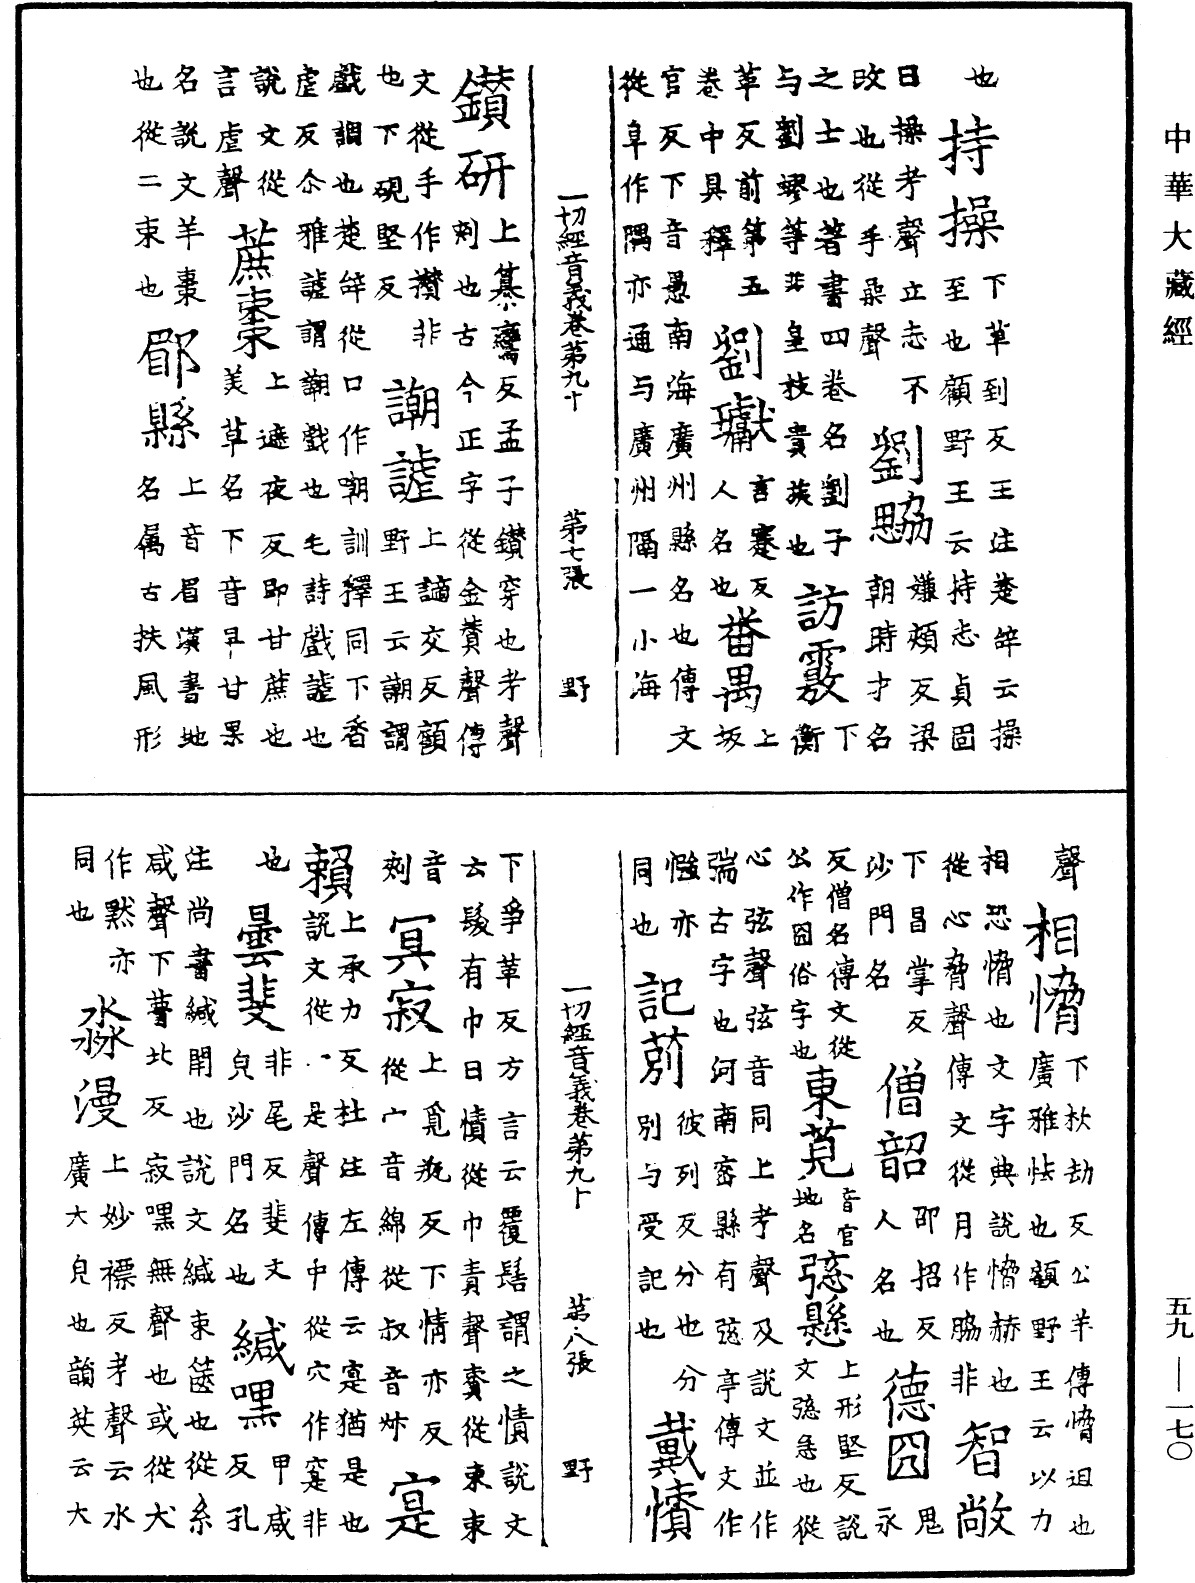 中華大藏經
也 持操 下草到反王注楚辭云操
至也顧野王云持志貞固
曰操考聲立志不
改也從手喿聲 劉勰 嫌頰反梁
朝時才名
之士也著書四卷名劉子
与劉蟉等並皇枝貴族也 訪覈 下
衡
革反前第五
卷中具釋 劉瓛 言蹇反
人名也 番禺 上
坂
官反下音愚南海廣州縣名也傳文
從阜作隅亦通与廣州隔一小海
一切經音義卷第九十 第七張 野
鑚研 上纂鸞反孟子鑽穿也考聲
刾也古今正字從金贊聲傳
文從手作攢非
也下硯堅反 謿謔 上謫交反顧
野王云謿謂
戲謂也楚辭從口作嘲訓釋同下香
虐反尒雅謔謂謿戲也毛詩戲謔也
說文從
言虐聲 蔗棗 上遮夜反即甘蔗也
美草名下音早甘果
名說文羊棗
也從二朿也 郿縣 上音眉漢書地
名属古扶風形
聲 相愶 下杴劫反公羊傳愶迫也
廣雅怯也顧野王云以力
相恐愶也文字典說愶赫也
從心脅聲傳文從月作脇非 智敞
下昌掌反
沙門名 僧韶 邵招反
人名也 德囧 鬼
永
反僧名傳文從
公作囧俗字也 東莞 音官
地名 㢸懸 上形堅反說
文㢸急也從
心弦聲弦音同上考聲及說文並作
古字也河南密縣有㢸亭傳文作
亦
同也 記莂 彼列反分也分
別与受記也 戴幘
一切經音義卷第九十 第八張 野
下爭革反方言云覆髻謂之幘說文
云髮有巾曰幘從巾責聲責從朿朿
音
刾 冥寂 上覓瓶反下情亦反
從宀音綿從叔音 寔
賴 上承力反杜注左傳云寔猶是也
說文從宀是聲傳中從穴作寔非
也 曇斐 非尾反斐文
皃沙門名也 緘嘿 甲咸
反孔
注尚書緘閉也說文緘束篋也從糸
咸聲下瞢北反寂嘿無聲也或從犬
作默亦
同也 淼漫 上妙褾反考聲云水
廣大皃也韻英云大
五九—一七〇